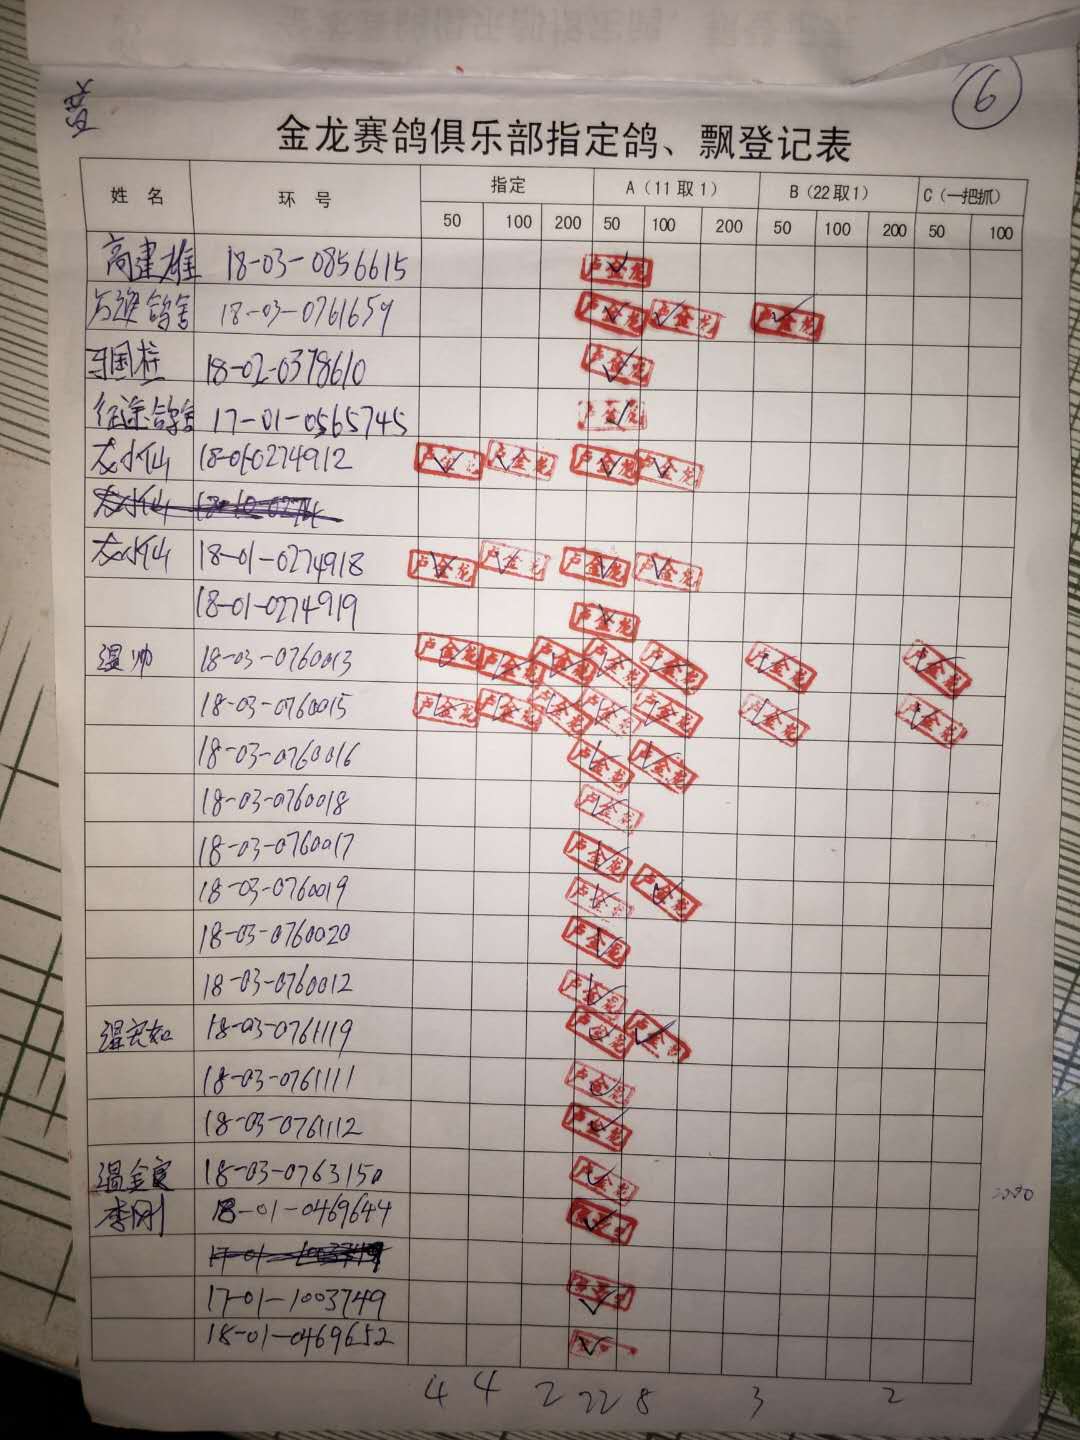 6
金龙赛鸽俱乐部指定鸽、飘登记表
姓 名 环 号 指定 A (11取1) B (22取1) C (一把抓)
50 100 200 50 100 200 50 100 200 50 100
高建雄 18-03-0856615 卢金龙
方逊鸽舍 18-03-0761659 卢金龙 卢金龙 卢金龙
国柱 18-02-0378610 卢金龙
征途鸽舍 17-01-0565745 卢金龙
龙小仙 18-01-0274912 卢金龙 卢金龙 卢金龙 卢金龙
龙小仙
龙小仙 18-01-0274918 卢金龙 卢金龙 卢金龙 卢金龙
18-01-0274919 卢金龙
温帅 18-03-0760013 卢金龙 卢金龙 卢金龙 卢金龙 卢金龙 卢金龙 卢金龙
18-03-0760015 卢金龙 卢金龙 卢金龙 卢金龙 卢金龙 卢金龙 卢金龙
18-03-0760016 卢金龙 卢金龙
18-03-0760018 卢金龙
18-03-0760017 卢金龙
18-03-0760019 卢金龙 卢金龙
18-03-0760020 卢金龙
18-03-0760012 卢金龙
18-03-0761119 卢金龙 卢金龙
18-03-0761111 卢金龙
18-03-0761112 卢金龙
温全良 18-03-0763150 卢金龙
李刚 18-01-0469644 卢金龙
17-01-1003749
17-01-1003749
18-01-0469652
4 4 2 22 8 3 2